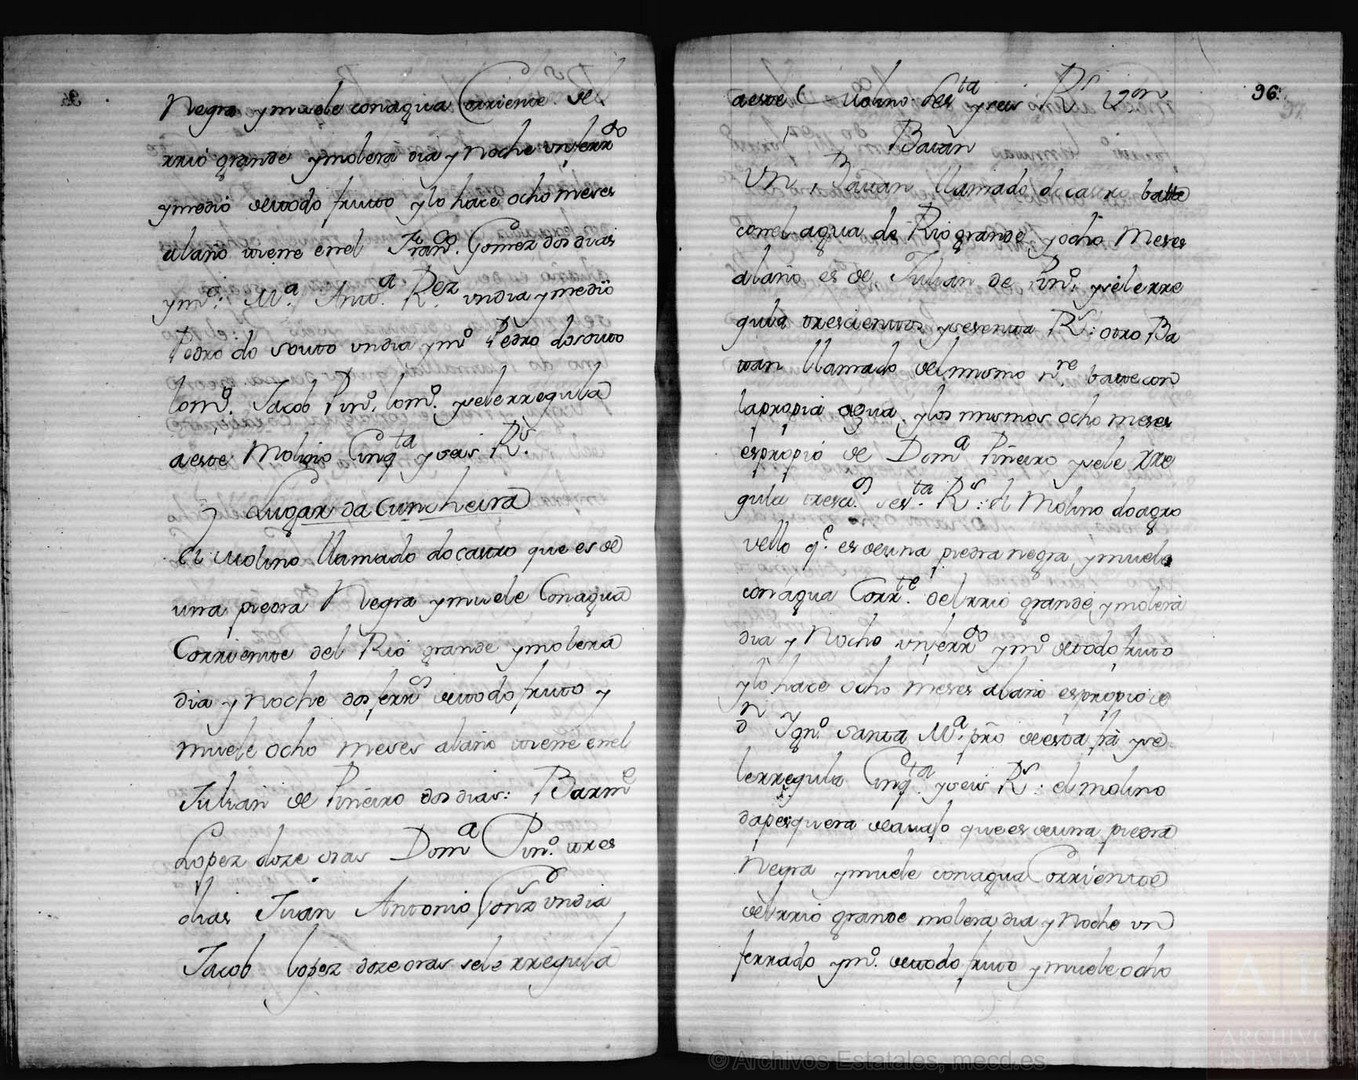 Negra ymuele conagua Corriente del
rrio grande ymolera dia y Noche unferr.do
ymedio detodo fruto ylo hace ocho meses
alaño tiene enel Fran.co Gomez dos dias
ym.o: M.a Ant.a R.ez undia ymedio
Pedro do Souto undia ym.o Pedro dosouto
lom.o. Jacob Pin.o lom.o. yselerregula
aeste Molino Cinq.ta yseis R.s.
Lugar da Cuncheira
El Molino llamado do castro que es de
una piedra Negra ymuele Conagua
Corriente del Rio grande ymolera
dia y Noche dos ferr.os detodo fruto y
muele ocho meses alaño tiene enel
Julian de Piñeiro dos dias: Barm.e
Lopez doze oras Dom.a Pin.o tres
dias Juan Antonio Gonz.z undia
Jacob Lopez doze oras sele rregula
96.
aeste Molino Ses.ta yseis R.s von
Batán
Un Batan llamado do castro batte
conel agua de Rio grande yocho Meses
alaño es de Julian de Pin.o yselerre
gula trescientos ysesenta R.s: otro Ba
tan llamado delmismo n.re bate con
lapropia agua ylos mismos ocho meses
espropio de Dom.a Piñeiro ysele Rre
gula tresci.s ses.ta R.s: el Molino doagro
vello q.e es deuna piedra negra ymuele
conagua Corr.te delrrio grande ymolera
dia y Noche unferr.do ym.o detodo fruto
ylo hace ocho meses alaño espropio de
D.n Ygn.o Santa M.a pro deesta fra yse
lerregula Cinq.ta yseis R.s: el molino
dapesquera deavajo quees deuna piedra
Negra ymuele conagua Corriente
delrrio grande molera dia y Noche un
ferrado ym.o. detodo fruto ymuele ocho
© Archivos Estatales, mecd.es
ARCHIVOS
ESTATALES